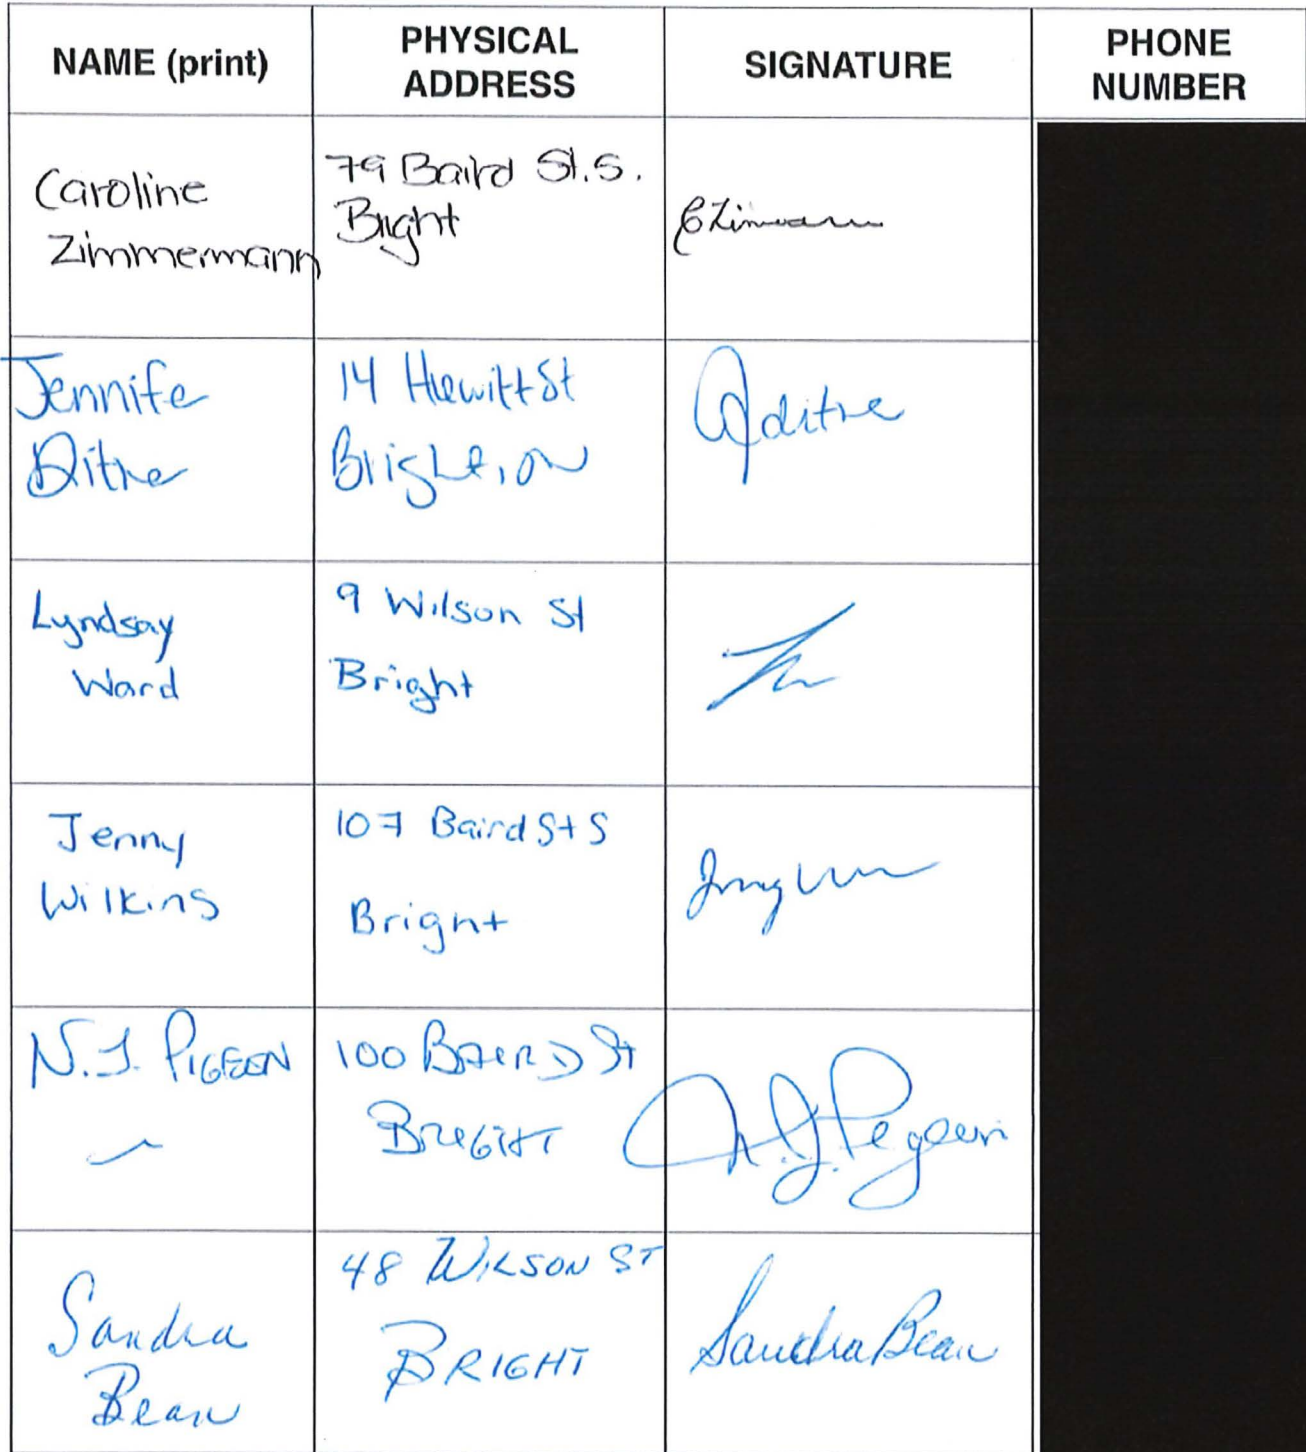 NAME (print)
PHYSICAL
ADDRESS
SIGNATURE
PHONE
NUMBER
Caroline
Zimmermann
79 Baird St. S.
Bright
Jennife
14 Hewitt St
Bright, ON
Lyndsay
Ward
9 Wilson St
Bright
Jenny
Wilkins
107 Baird St S
Bright
N.J. PIGEON
100 BAIRD St
BRIGHT
N.J. Pigeon
Sandra
Bean
48 WILSON ST
BRIGHT
Sandra Bean